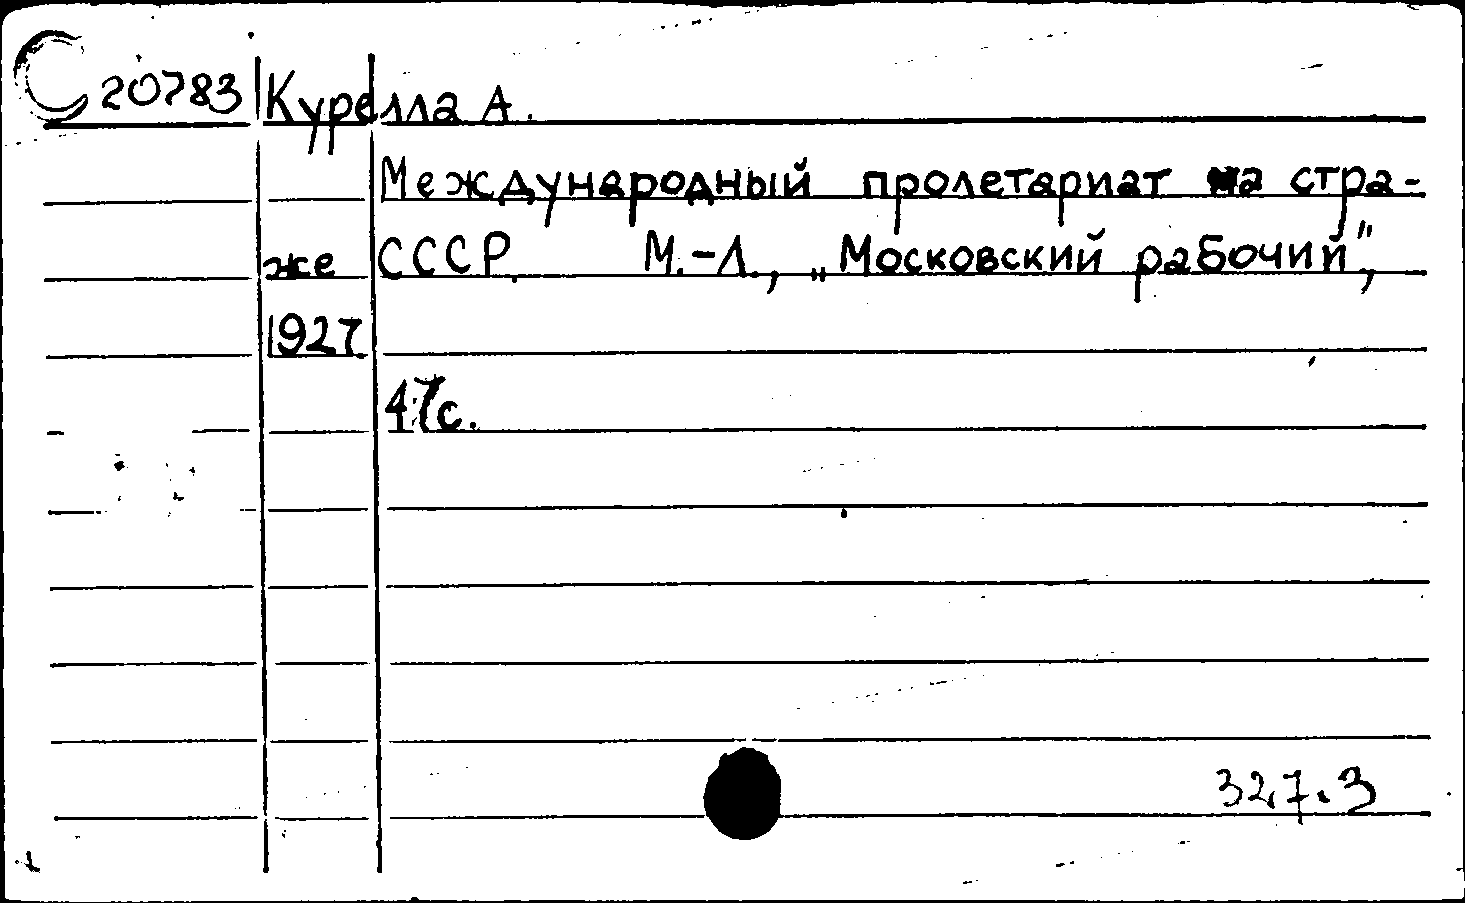 С 20783 Курелла А.
Международный пролетариат на стра-
же СССР. М.-Л., „Московский рабочий",
1927
47с.
327.3